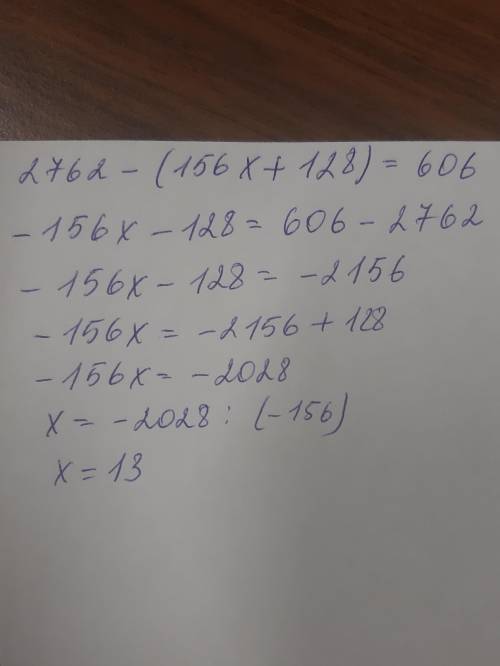 2762 - (156x + 128) = 606
- 156x - 128 = 606 - 2762
- 156x - 128 = -2156
- 156x = -2156 + 128
- 156x = -2028
x = -2028 : (-156)
x = 13